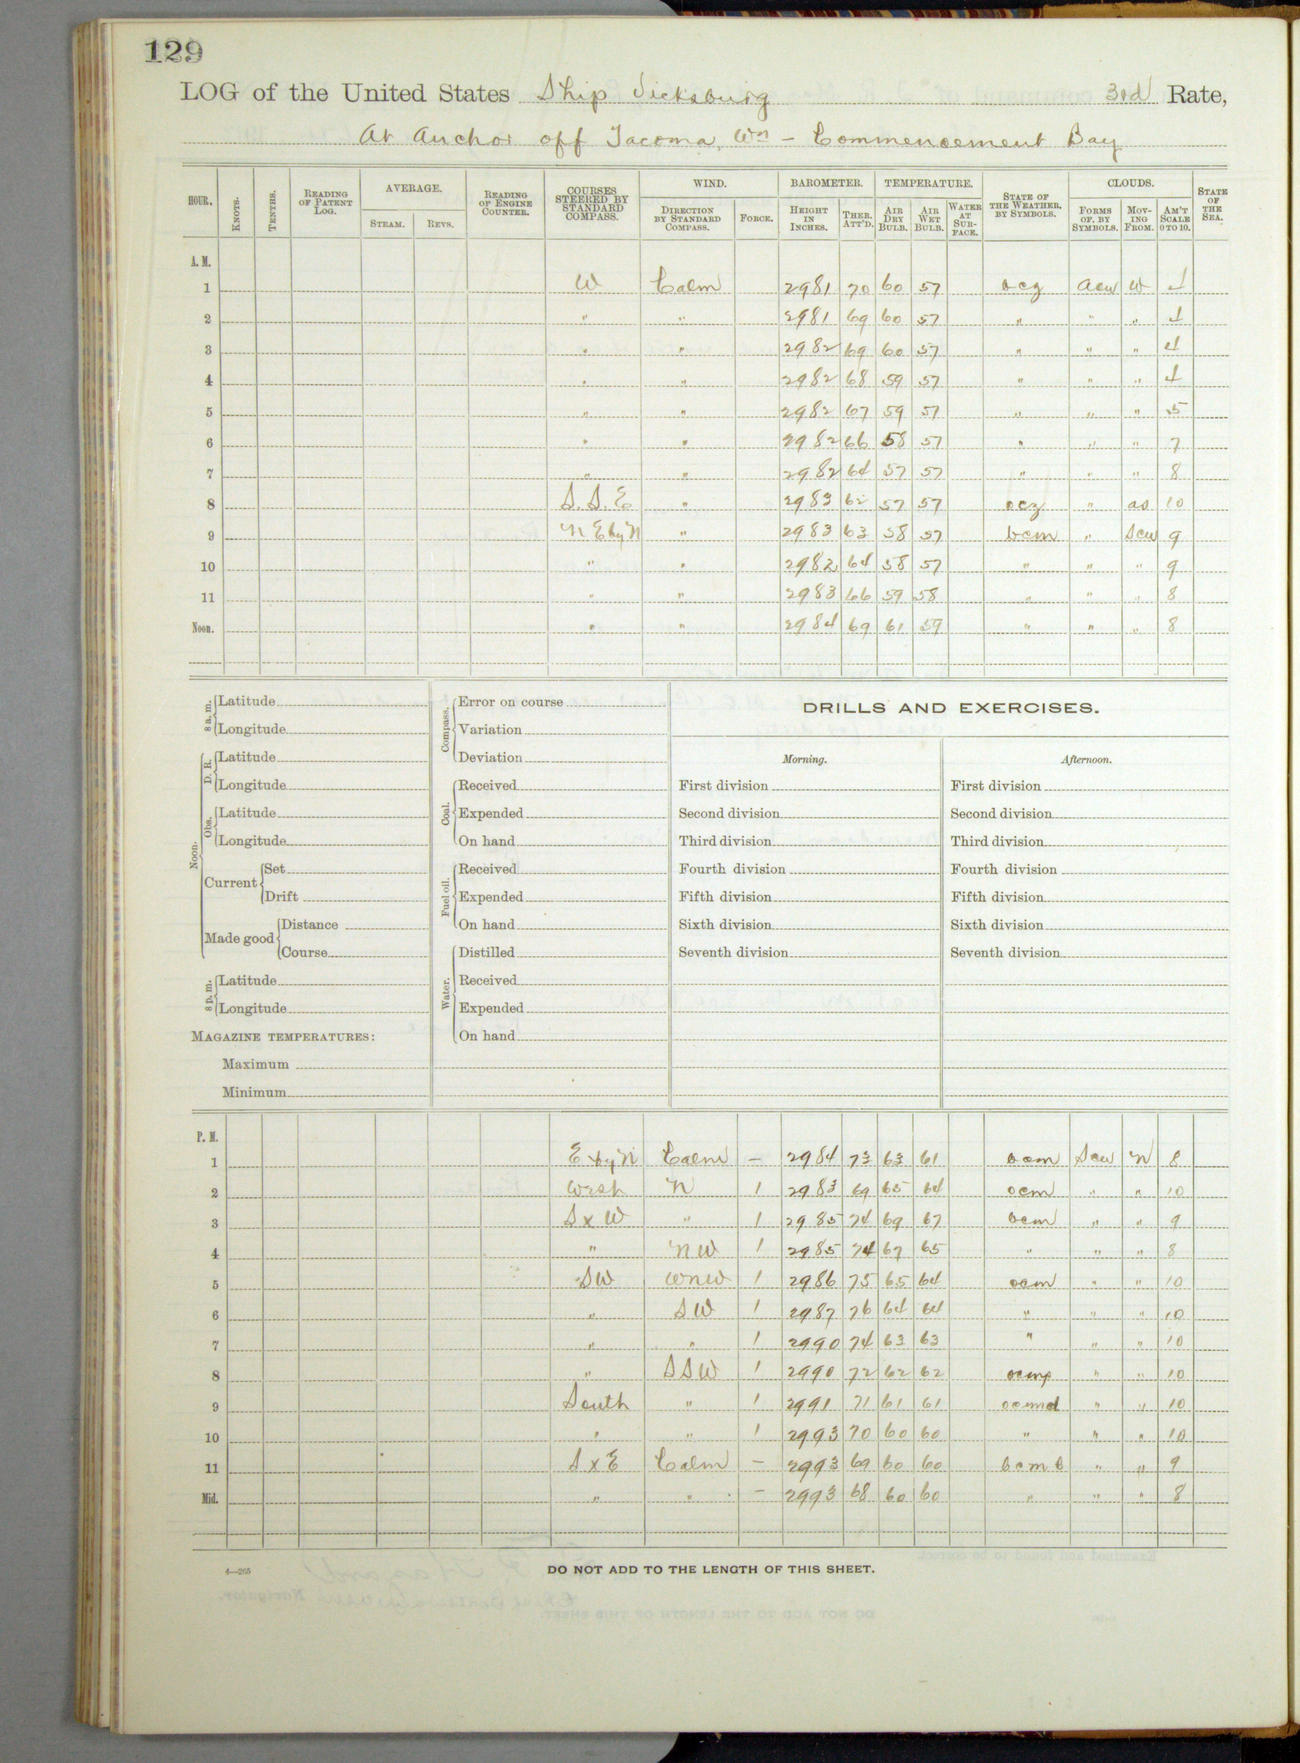 129
LOG of the United States Ship Vicksburg 3rd Rate,
At Anchor off Tacoma, Wn - Commencement Bay
HOUR. KNOTS. TENTHS. READING OF PATENT LOG. AVERAGE. STEAM. REVS. READING OF ENGINE COUNTER. COURSES STEERED BY STANDARD COMPASS. WIND. DIRECTION BY STANDARD COMPASS. FORCE. BAROMETER. HEIGHT IN INCHES. THER. ATT'D. TEMPERATURE. AIR DRY BULB. AIR WET BULB. WATER AT SUR-FACE. STATE OF THE WEATHER, BY SYMBOLS. CLOUDS. FORMS OF, BY SYMBOLS. MOV-ING FROM. AM'T SCALE 0 TO 10. STATE OF THE SEA.
A. M.
1 W Calm 2981 70 60 57 ocz acu W 4
2 " " 2981 69 60 57 " " " 4
3 " " 2982 69 60 57 " " " 4
4 " " 2982 68 59 57 " " " 4
5 " " 2982 67 59 57 " " " 5
6 " " 2982 66 58 57 " " " 7
7 " " 2982 64 57 57 " " " 8
8 S.S.E " 2983 62 57 57 ocz " as 10
9 N E by N " 2983 63 58 57 bcm " Scu 9
10 " " 2982 64 58 57 " " " 9
11 " " 2983 66 59 58 " " " 8
Noon. " " 2984 69 61 59 " " " 8
8 a. m. Latitude
Longitude
Noon.
D. R. Latitude
Longitude
Obs. Latitude
Longitude
Current Set
Drift
Made good Distance
Course
8 p. m. Latitude
Longitude
MAGAZINE TEMPERATURES:
Maximum
Minimum
Compass. Error on course
Variation
Deviation
Coal. Received
Expended
On hand
Fuel oil. Received
Expended
On hand
Water. Distilled
Received
Expended
On hand
DRILLS AND EXERCISES.
Morning.
First division
Second division
Third division
Fourth division
Fifth division
Sixth division
Seventh division
Afternoon.
First division
Second division
Third division
Fourth division
Fifth division
Sixth division
Seventh division
P. M.
1 E by N Calm — 2984 73 63 61 bcm Scu N 8
2 West N 1 2983 69 65 64 ocm " " 10
3 S x W " 1 2985 74 69 67 bcm " " 9
4 " NW 1 2985 74 67 65 " " " 8
5 SW WNW 1 2986 75 65 64 ocm " " 10
6 " SW 1 2987 76 64 64 " " " 10
7 " " 1 2990 74 63 63 " " " 10
8 " SSW 1 2990 72 62 62 ocmp " " 10
9 South " 1 2991 71 61 61 ocmd " " 10
10 " " 1 2993 70 60 60 " " " 10
11 S x E Calm — 2993 69 60 60 " " 9
Mid. " " — 2993 68 60 60 " " " 8
4—265
DO NOT ADD TO THE LENGTH OF THIS SHEET.